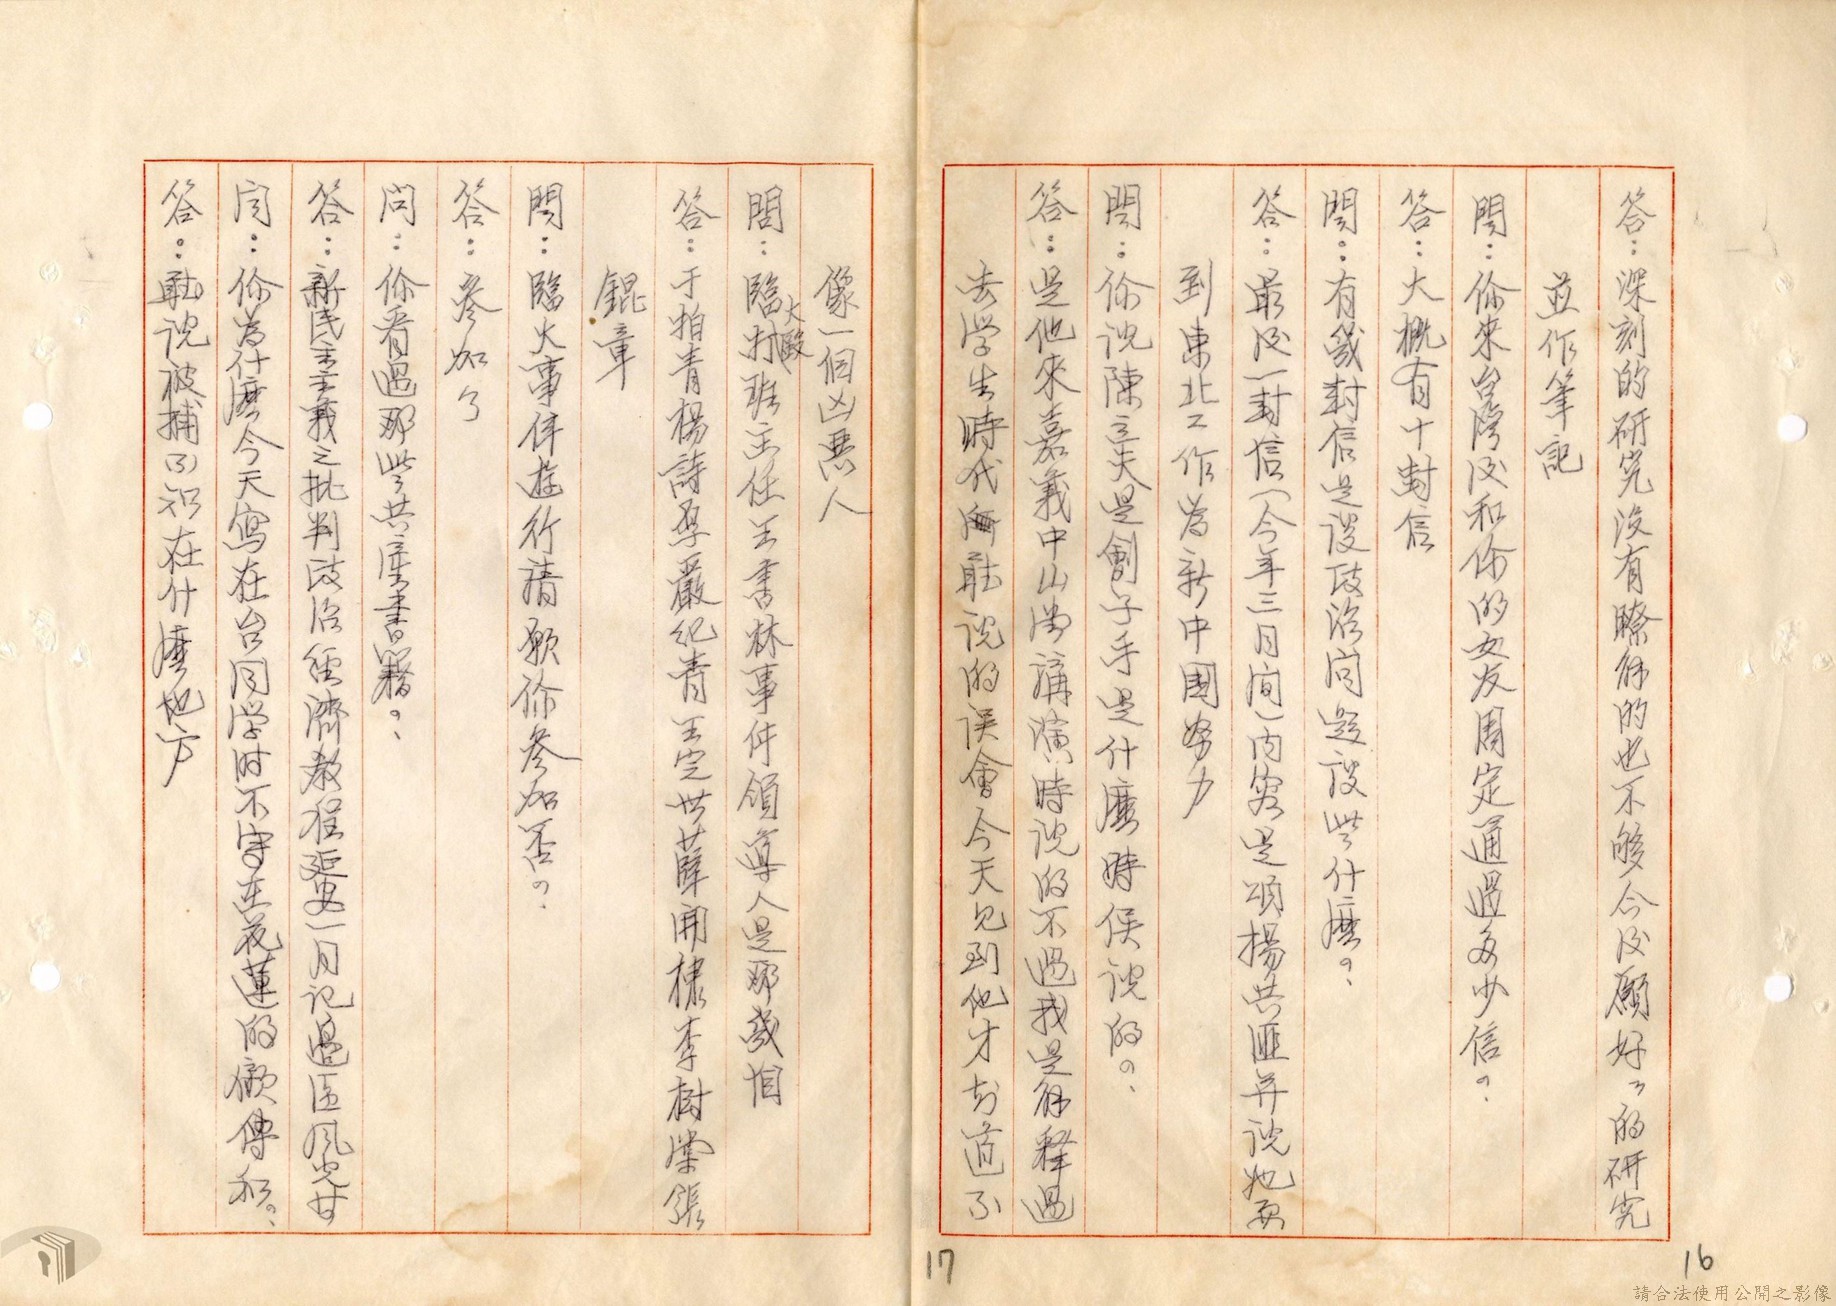 答：深刻的研究没有瞭解的也不够今后願好々的研究
並作筆記
問：你來台灣后和你的女友周定通過多少信？
答：大概有十封信
問：有幾封信是談政治问題談些什麽？
答：最后一封信（今年三月间）内容是頌揚共匪并说她要
到東北工作為新中國努力
問：你说陳立夫是劊子手是什麽時侯说的？
答：是他來嘉義中山堂講演時说的不過我是解释過
去学生時代 耻说的误會今天见到他才知道不
像一個凶悪人
問：臨大打毆班主任王書林事件領導人是那幾個
答：于拍青楊詩 嚴纪青王定世薛開棣李樹榮張
錕章
問：臨大事件遊行請愿你參加否？
答：參加了
问：你看過那些共産書籍？
答：新民主主義之批判政治经濟教程延安一月记邊區風光廿
问：你為什麽今天寫在台同学时不寫在花蓮的 傳和？
答：耻说被捕不知在什麽地方
17
16
請合法使用公開之影像